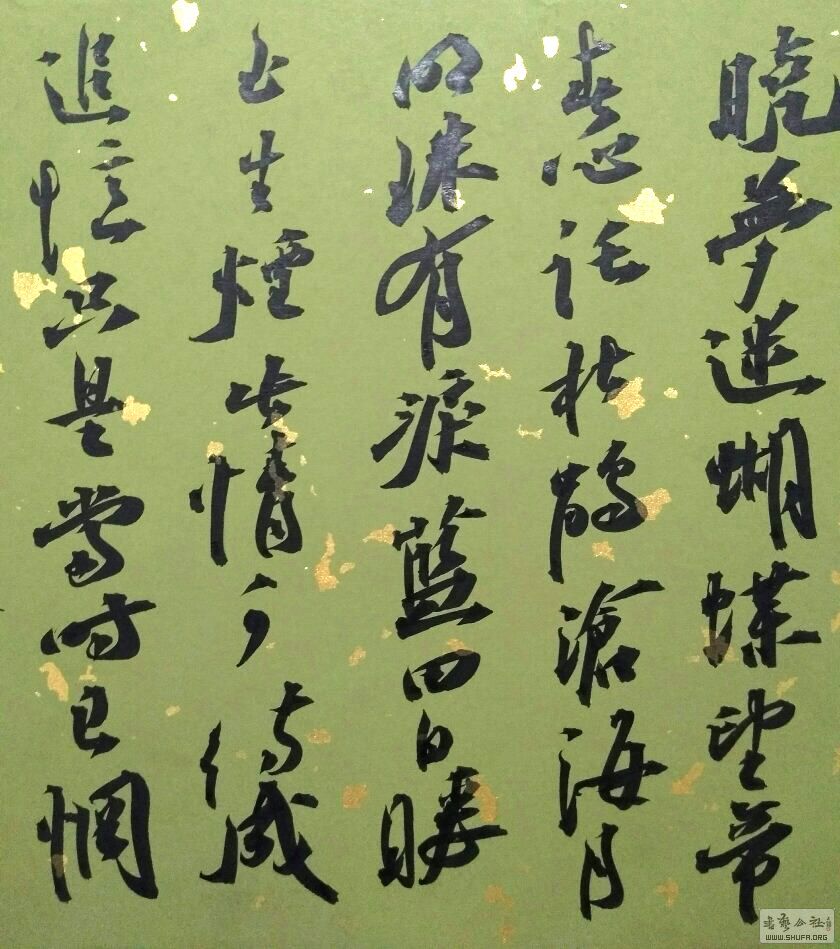 曉夢迷蝴蝶望帝
春心託杜鵑滄海月
明珠有淚藍田日暖
玉生煙此情可待成
追憶只是當時已惘
書藝公社
WWW.SHUFA.ORG